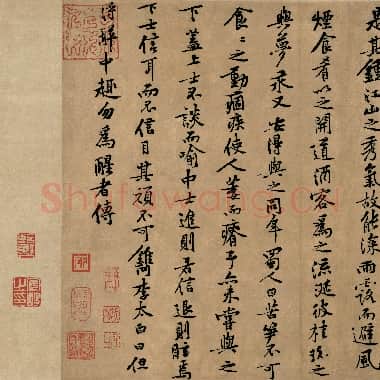 是其鍾江山之秀氣故能深雨露而避風
煙食肴以之開道酒客為之流涎彼桂玫之
與夢汞又安得與之同年蜀人曰苦筍不可
食〻之動痼疾使人萎而瘠予亦未嘗與之
下蓋上士不談而喻中士進則若信退則眩焉
下士信耳而不信目其頑不可鐫李太白曰但
得醉中趣勿為醒者傳
Shufawang.CN